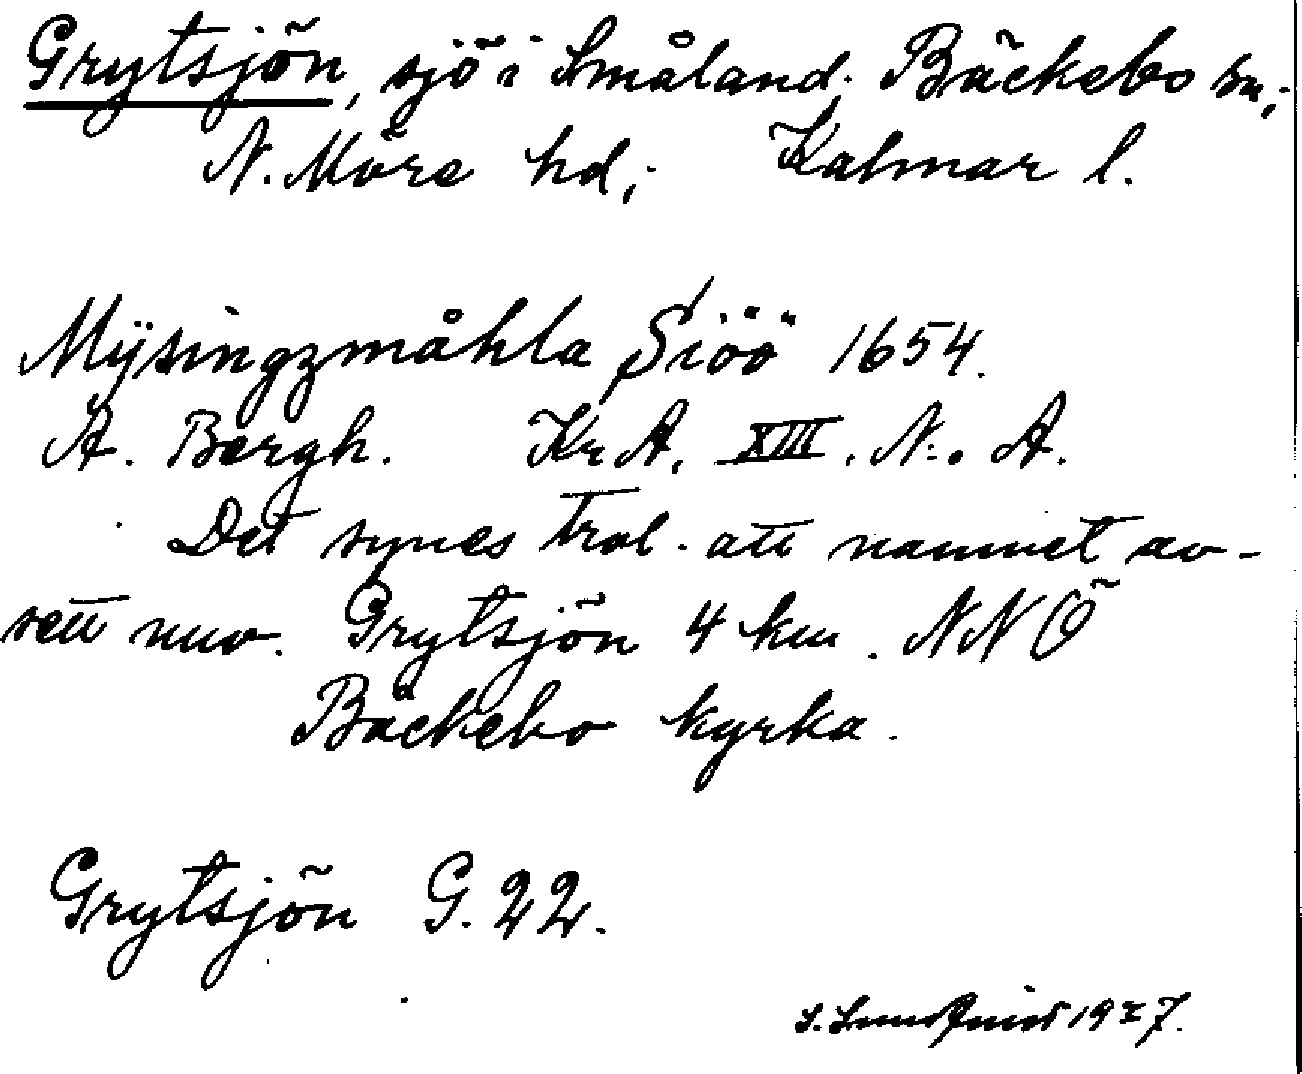 Grytsjön, sjö i Småland; Bäckebo sn;
N. Möre hd; Kalmar l.
Mÿsingzmåhla Siöö 1654.
A. Bergh. Kr A. XIII. N:. A.
Det synes trol. att namnet av-
sett nuv. Grytsjön 4 km. NNÖ
Bäckebo kyrka.
Grytsjön G. 22.
S. Lundquist 1927.